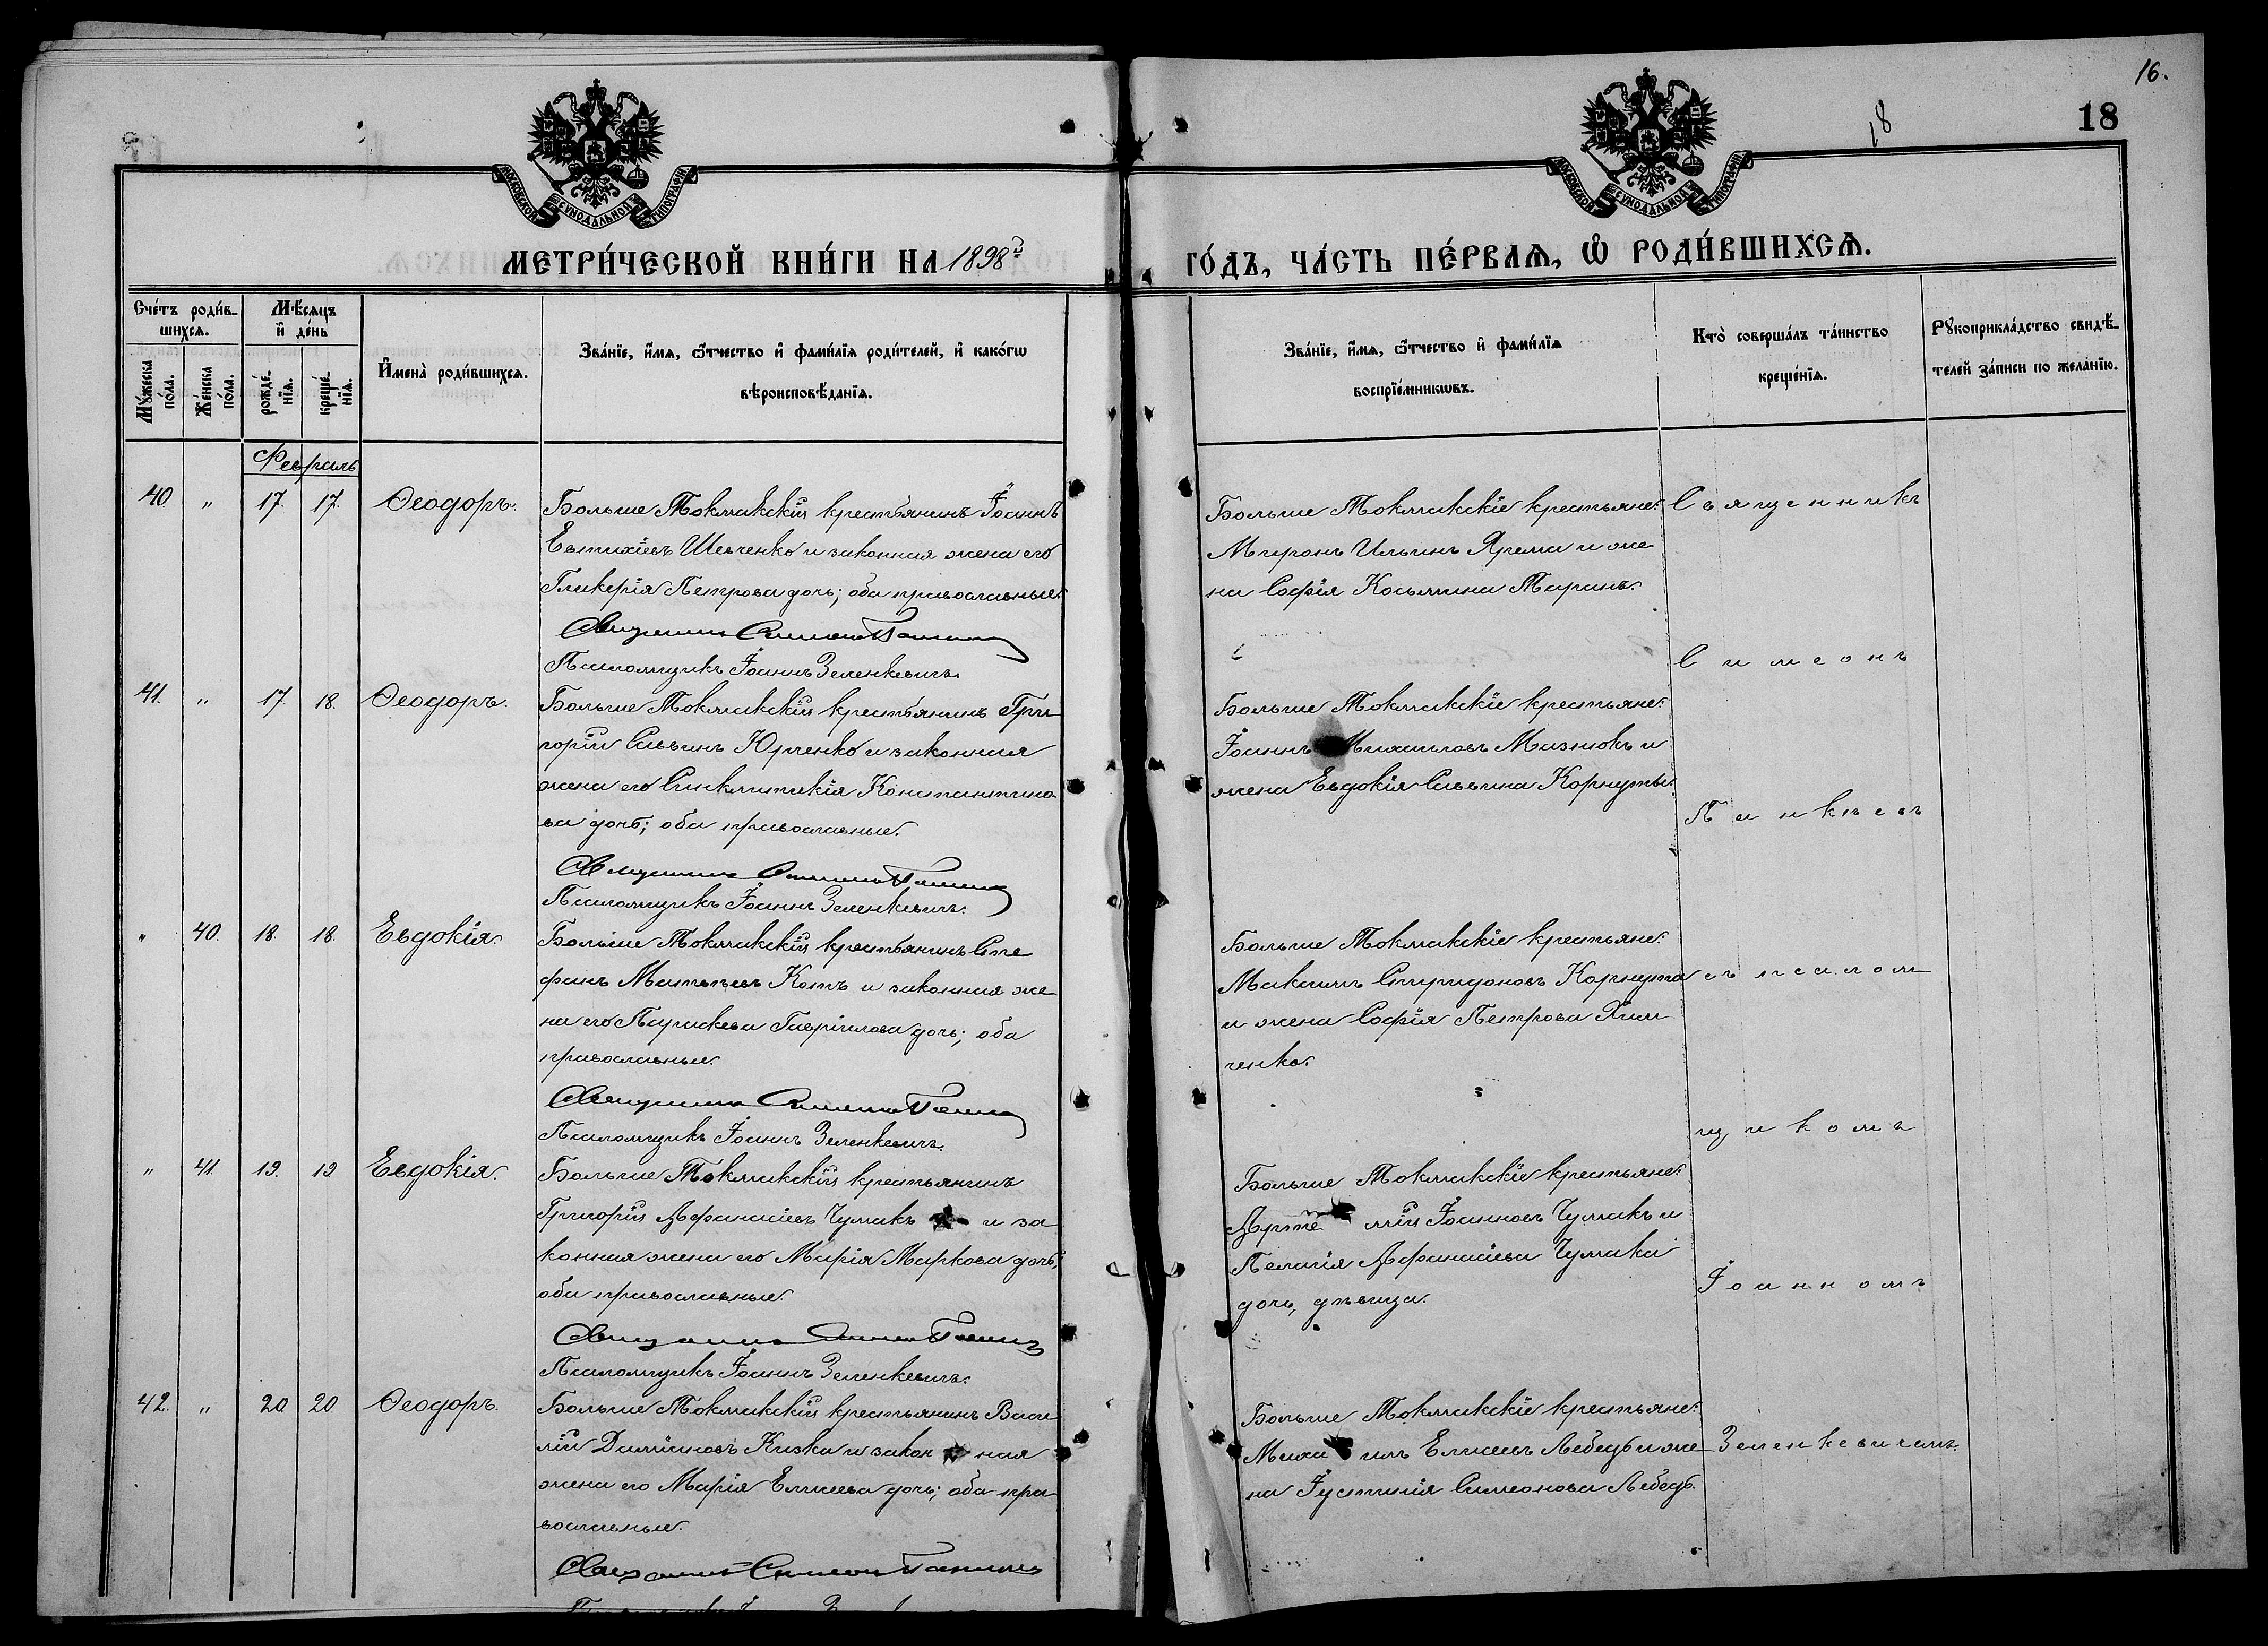 16.
18
18
МОСКОВСКОЙ СУНОДАЛЬНОЙ ТИПОГРАФІИ
МОСКОВСКОЙ СУНОДАЛЬНОЙ ТИПОГРАФІИ
МЕТРИ́ЧЕСКОЙ КНИ́ГИ НА 1898й
ГО́ДЪ, ЧА́СТЬ ПЕ́РВАѦ, Ѡ҆ РОДИ́ВШИХСѦ.
Сче́тъ роди́в-
шихсѧ.
Мꙋ́жеска по́ла.
Же́нска по́ла.
Мѣ́сѧцъ
и҆ де́нь
рожде́-
нїѧ.
креще́-
нїѧ.
И҆мена̀ роди́вшихсѧ.
Зва́нїе, и҆́мѧ, ѻ҆́тчество и҆ фами́лїѧ роди́телей, и҆ како́гѡ
вѣроисповѣ́данїѧ.
Зва́нїе, и҆́мѧ, ѻ҆́тчество и҆ фами́лїѧ
воспрїе́мникѡвъ.
Кто̀ соверша́лъ та́инство
креще́нїѧ.
Рꙋкоприкла́дство свидѣ́-
телей за́писи по жела́нїю.
Февраль
40. " 17. 17. Ѳеодоръ.
Больше Токмакскій крестьянинъ Іоаннъ
Евтихіевъ Шевченко и законная жена его
Гликерія Петрова дочь; оба православные.
Священникъ Симеонъ
Псаломщикъ Іоаннъ Зеленкевичъ.
Больше Токмакскіе крестьяне:
Миронъ Ильинъ Ярема и же
на Софія Косьмина Таранъ.
41. " 17. 18. Ѳеодоръ.
Больше Токмакскій крестьянинъ Гри-
горій Саввинъ Юрченко и законная
жена его Синклитикія Константино-
ва дочь; оба православные.
Священникъ Симеонъ
Псаломщикъ Іоаннъ Зеленкевичъ.
Больше Токмакскіе крестьяне:
Іоаннъ Михаиловъ Мазнюкъ и
жена Евдокія Саввина Корнуты.
" 40. 18. 18. Евдокія.
Больше Токмакскій крестьянинъ Сте
фанъ Матѳѣевъ Котъ и законная же
на его Параскева Гавріилова дочь; оба
православные.
Священникъ Симеонъ
Псаломщикъ Іоаннъ Зеленкевичъ.
Больше Токмакскіе крестьяне:
Максимъ Спиридоновъ Корнута
и жена Софія Петрова Хим
ченко.
" 41. 19. 19. Евдокія.
Больше Токмакскій крестьянинъ
Григорій Афанасіевъ Чумакъ и за
конная жена его Марія Маркова дочь;
оба православные.
Священникъ Симеонъ
Псаломщикъ Іоаннъ Зеленкевичъ.
Больше Токмакскіе крестьяне:
Арте мій Іоанновъ Чумакъ и
Пелагія Афанасіева Чумака
дочь, дѣвица.
42. " 20 20 Ѳеодоръ.
Больше Токмакскій крестьянинъ Васи
лій Даміановъ Кизка и закон ная
жена его Марія Елисеева дочь; оба пра-
вославные.
Священникъ Симеонъ
Больше Токмакскіе крестьяне:
Миха илъ Елисеевъ Лебедь и же
на Іустинія Симеонова Лебедь.
Священникъ
Симеонъ
Панкѣевъ
съ псалом
щикомъ
Іоанномъ
Зеленкевичемъ.